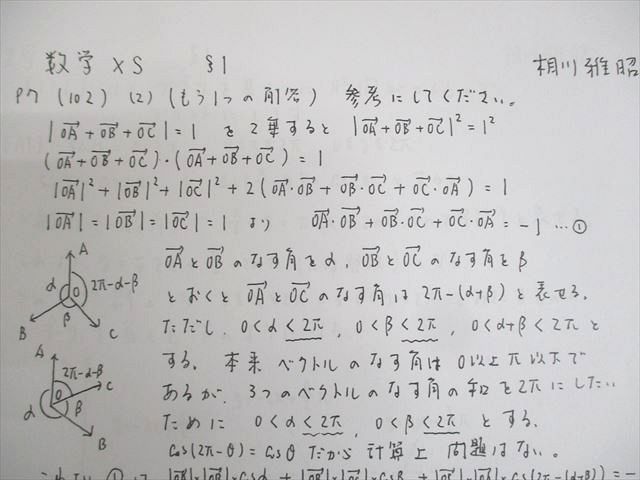 数学 XS §1 相川雅昭
P7 (102) (2) (もう1つの解答) 参考にしてください。
|OA→+OB→+OC→|=1 を2乗すると |OA→+OB→+OC→|²=1²
(OA→+OB→+OC→)・(OA→+OB→+OC→)=1
|OA→|²+|OB→|²+|OC→|²+2(OA→・OB→+OB→・OC→+OC→・OA→)=1
|OA→|=|OB→|=|OC→|=1 より OA→・OB→+OB→・OC→+OC→・OA→=-1 …①
A
α
O
2π-α-β
β
B
C
OA→とOB→のなす角をα, OB→とOC→のなす角をβ
とおくとOA→とOC→のなす角は2π-(α+β)と表せる.
ただし, 0<α<2π, 0<β<2π, 0<α+β<2πと
A
2π-α-β
C
O
α
β
B
する. 本来 ベクトルのなす角は0以上π以下で
あるが, 3つのベクトルのなす角の和を2πにしたい
ために 0<α<2π, 0<β<2π とする.
cos(2π-θ)=cosθ だから 計算上 問題はない。
①は |OA→|×|OB→|×cosα+|OB→|×|OC→|×cosβ+|OC→|×|OA→|×cos(2π-(α+β))=-